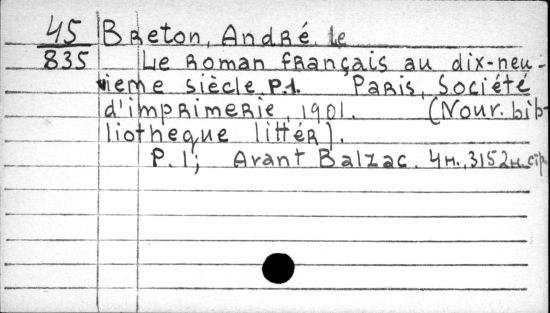 45 Breton, André le
835 Le Roman français au dix-neu-
vieme siècle P.1. Paris, Société
d'imprimerie, 1901. (Nour. bib-
liotheque littér).
P. 1; Avant Balzac. 4н., 315 2н. с